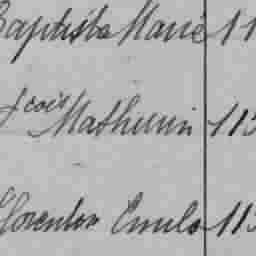 Baptiste Marie 11
fcois Mathurin 113
Florentin Emile 113